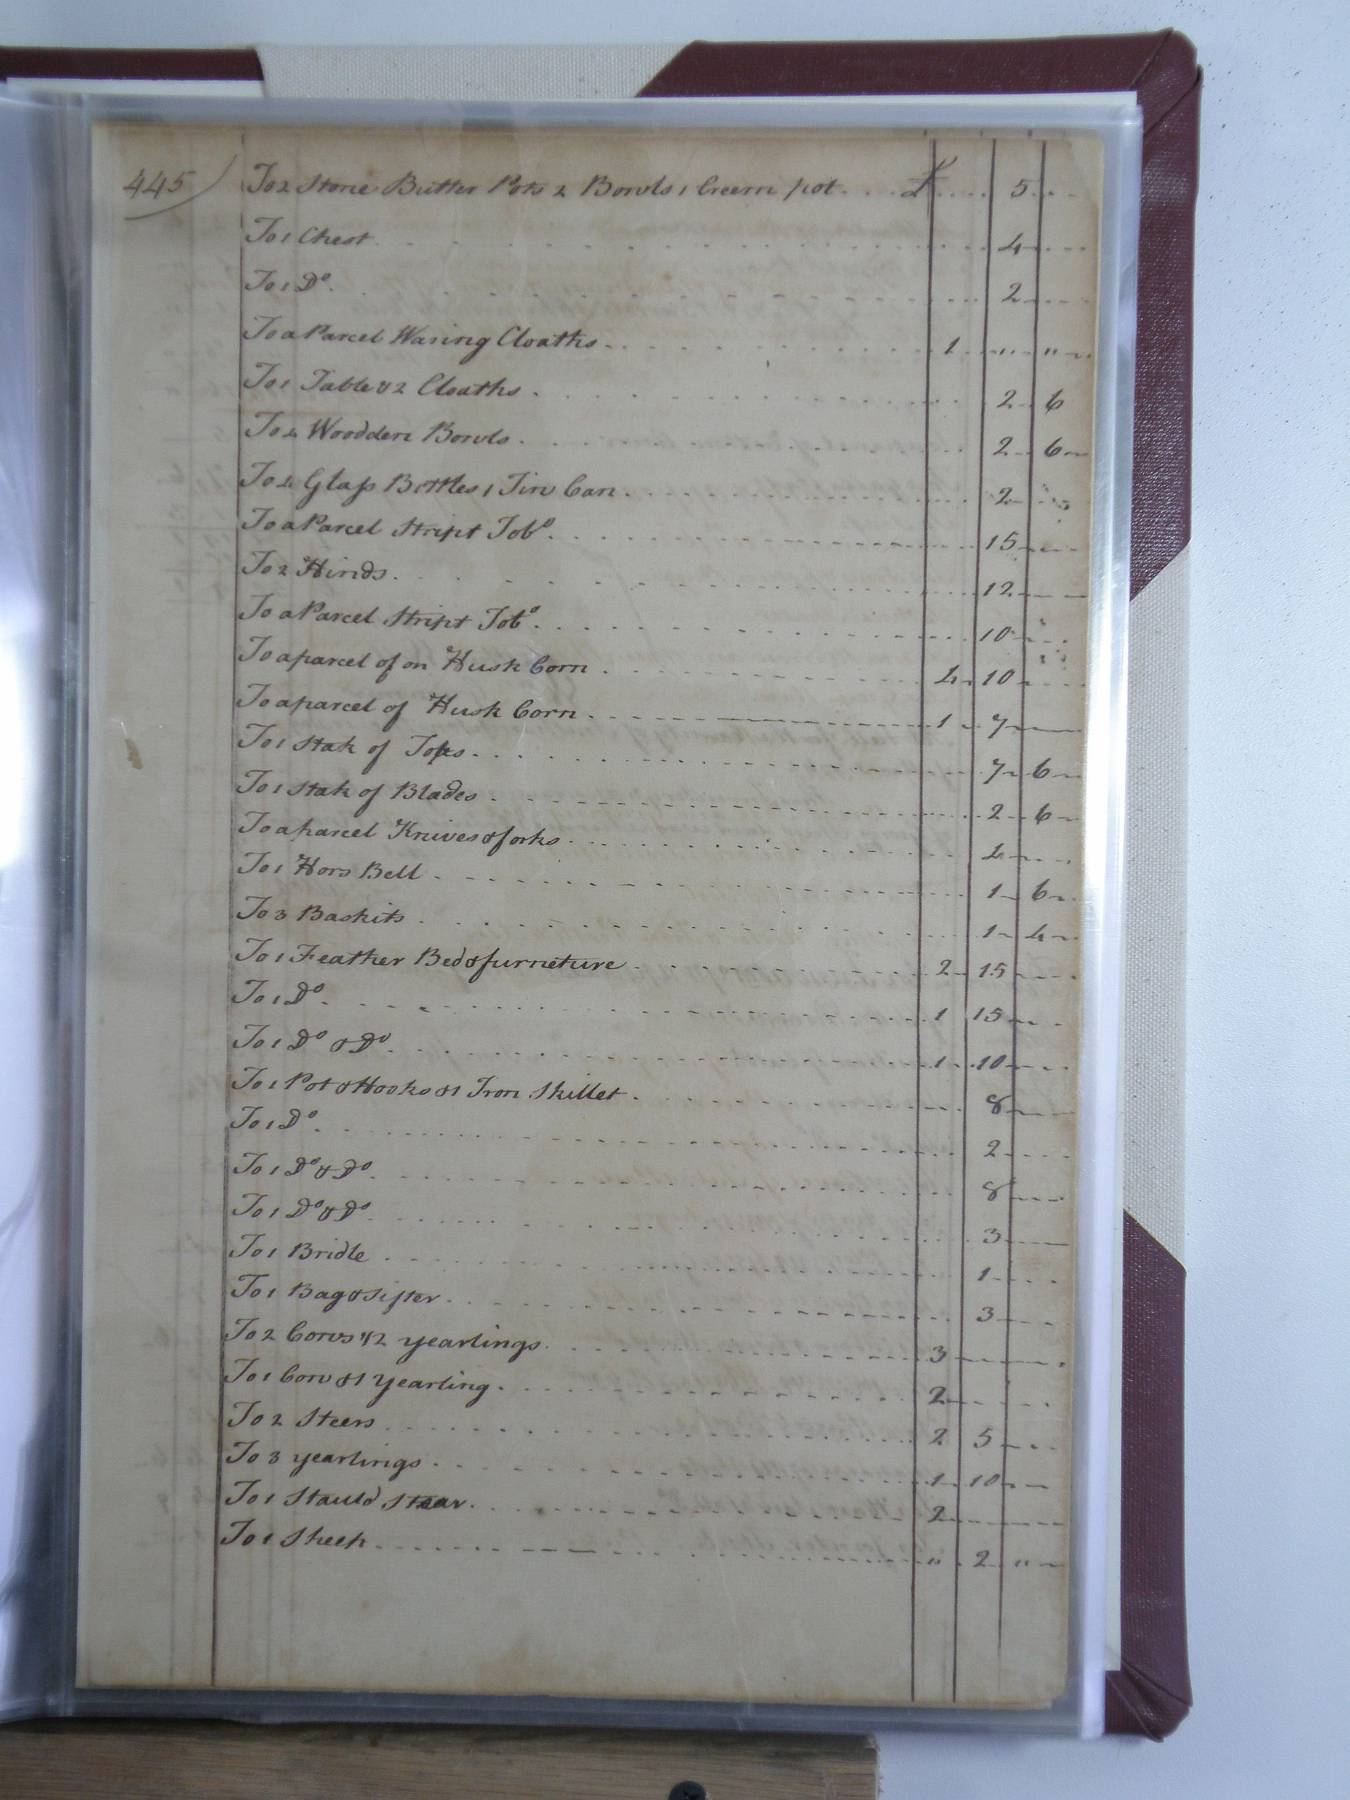 445) To 2 Stone Butter Pots 2 Bowls 1 Creem pot £ 5
To 1 Chest 4
To 1 Do. 2
To a Parcel Waring Cloaths 1 " "
To 1 Table & 2 Cloaths 2 6
To 4 Woodden Bowls 2 6
To 4 Glass Bottles 1 Tin Can 2
To a Parcel Stript Tobo. 15
To 2 Hinds 12
To a Parcel Stript Tobo. 10
To a parcel of on Husk Corn 4 10
To a parcel of Husk Corn 1 7
To 1 Stak of Tops 7 6
To 1 Stak of Blades 2 6
To a parcel Knives & forks 4
To 1 Hors Bell 1 6
To 3 Baskits 1 4
To 1 Feather Bed & furneture 2 15
To 1 Do. 1 15
To 1 Do & Do. 1 10
To 1 Pot & Hooks & 1 Iron Skillet 8
To 1 Do. 2
To 1 Do & Do. 8
To 1 Do & Do. 3
To 1 Bridle 1
To 1 Bag & Sifter 3
To 2 Cows & 2 yearlings 3
To 1 Cow & 1 Yearling 2
To 2 Steers 2 5
To 3 yearlings 1 10
To 1 Stauld Stear 2
To 1 Sheep " 2 "